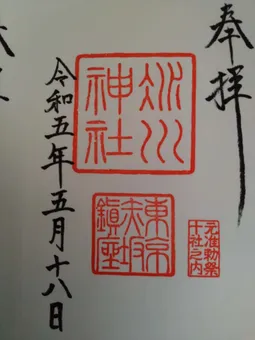 奉拝
元准勅祭
十社之内
氷川
神社
東京
赤坂
鎮座
令和五年五月十八日